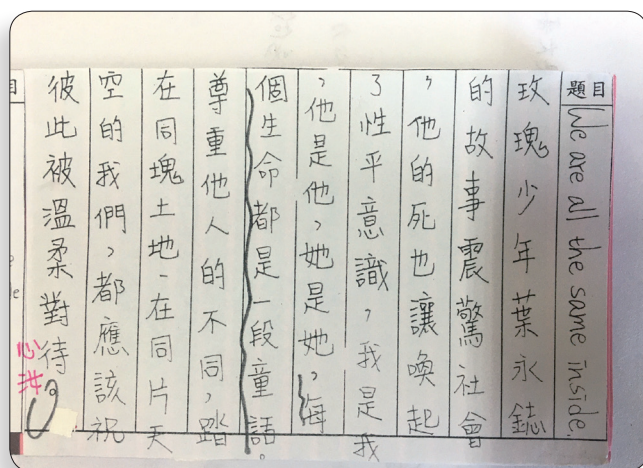 題目 We are all the same inside.
玫瑰少年葉永鋕
的故事震驚社會
，他的死也讓喚起
了性平意識，我是我
，他是他，她是她，每
個生命都是一段童話。
尊重他人的不同，踏
在同塊土地、在同片天
空的我們，都應該祝
彼此被溫柔對待。